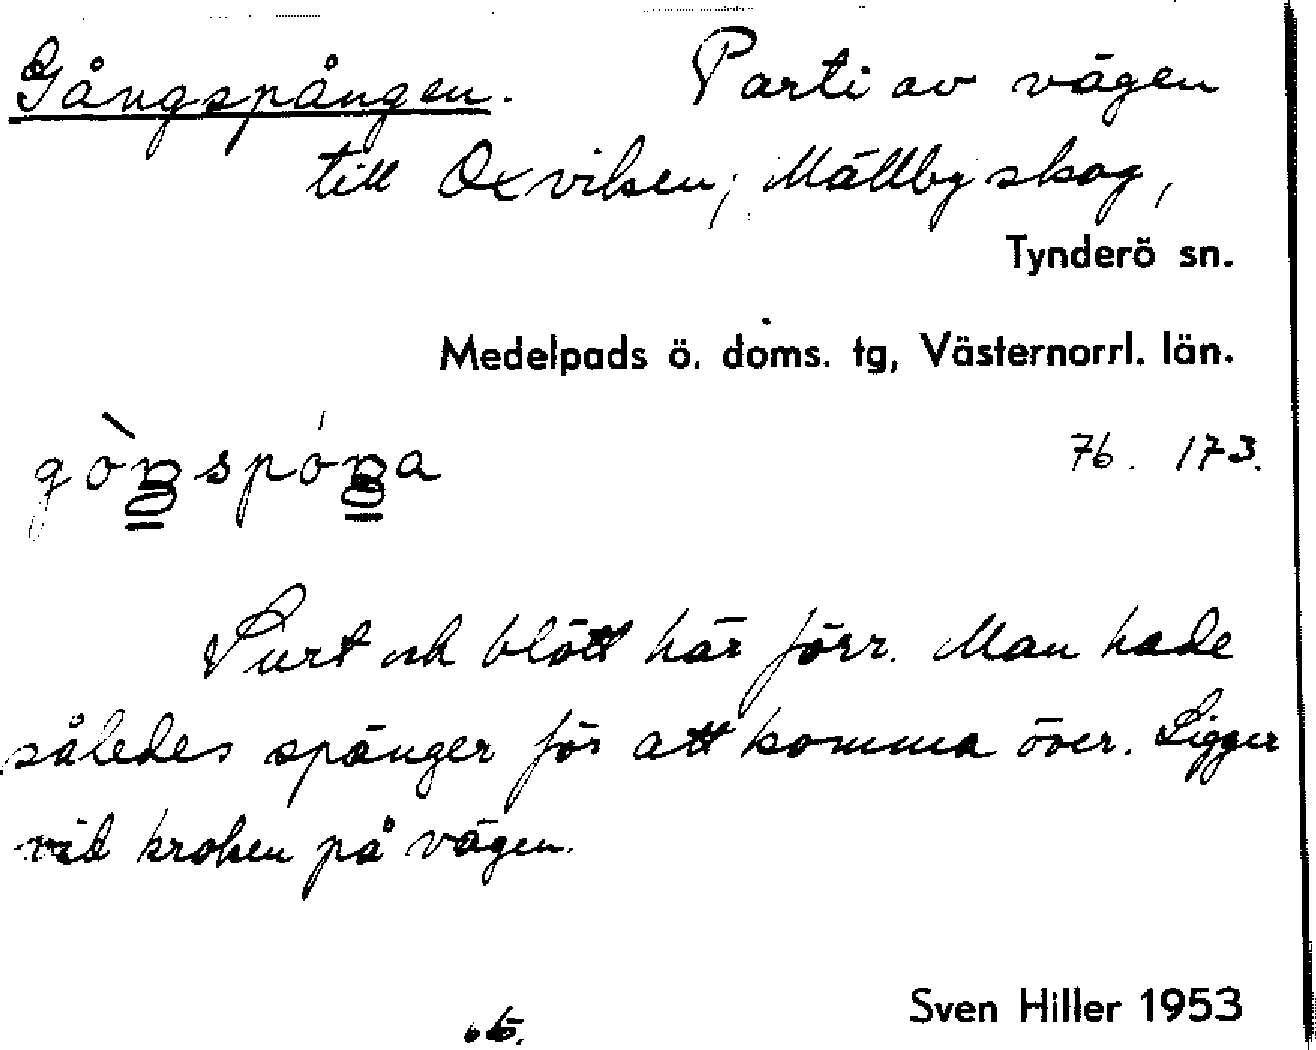 Gångspången. Parti av vägen
till Oxviken; Mällby skog,
Tynderö sn.
Medelpads ö. doms. tg, Västernorrl. län.
gòŋspóŋa 76. 173.
Surt och blött här förr. Man hade
således spänger för att komma över. Ligger
vid kroken på vägen.
Sven Hiller 1953